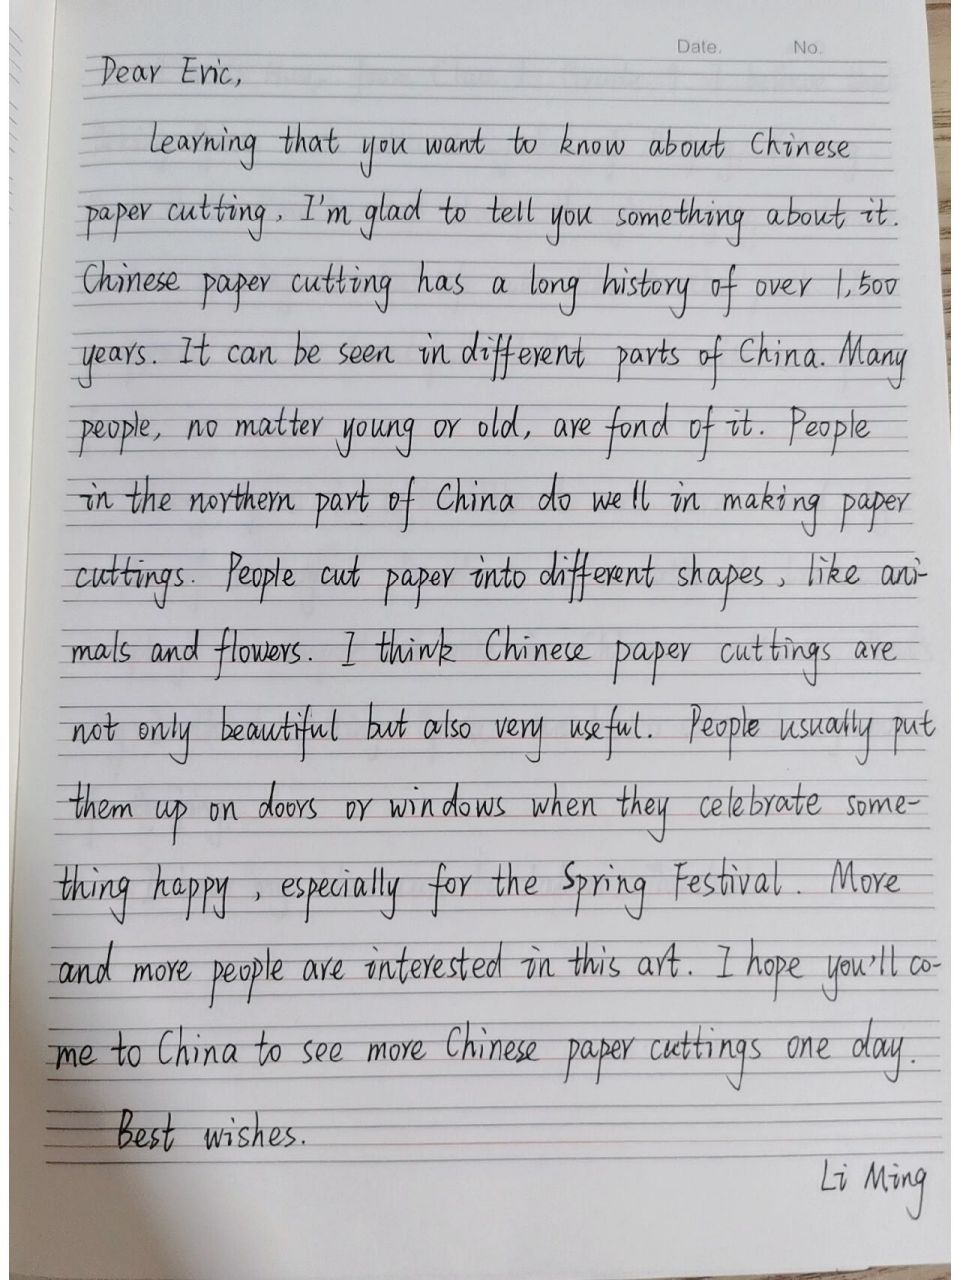 Date.
No.
Dear Eric,
Learning that you want to know about Chinese
paper cutting, I'm glad to tell you something about it.
Chinese paper cutting has a long history of over 1,500
years. It can be seen in different parts of China. Many
people, no matter young or old, are fond of it. People
in the northern part of China do well in making paper
cuttings. People cut paper into different shapes, like ani-
mals and flowers. I think Chinese paper cuttings are
not only beautiful but also very useful. People usually put
them up on doors or windows when they celebrate some-
thing happy, especially for the Spring Festival. More
and more people are interested in this art. I hope you'll co-
me to China to see more Chinese paper cuttings one day.
Best wishes.
Li Ming